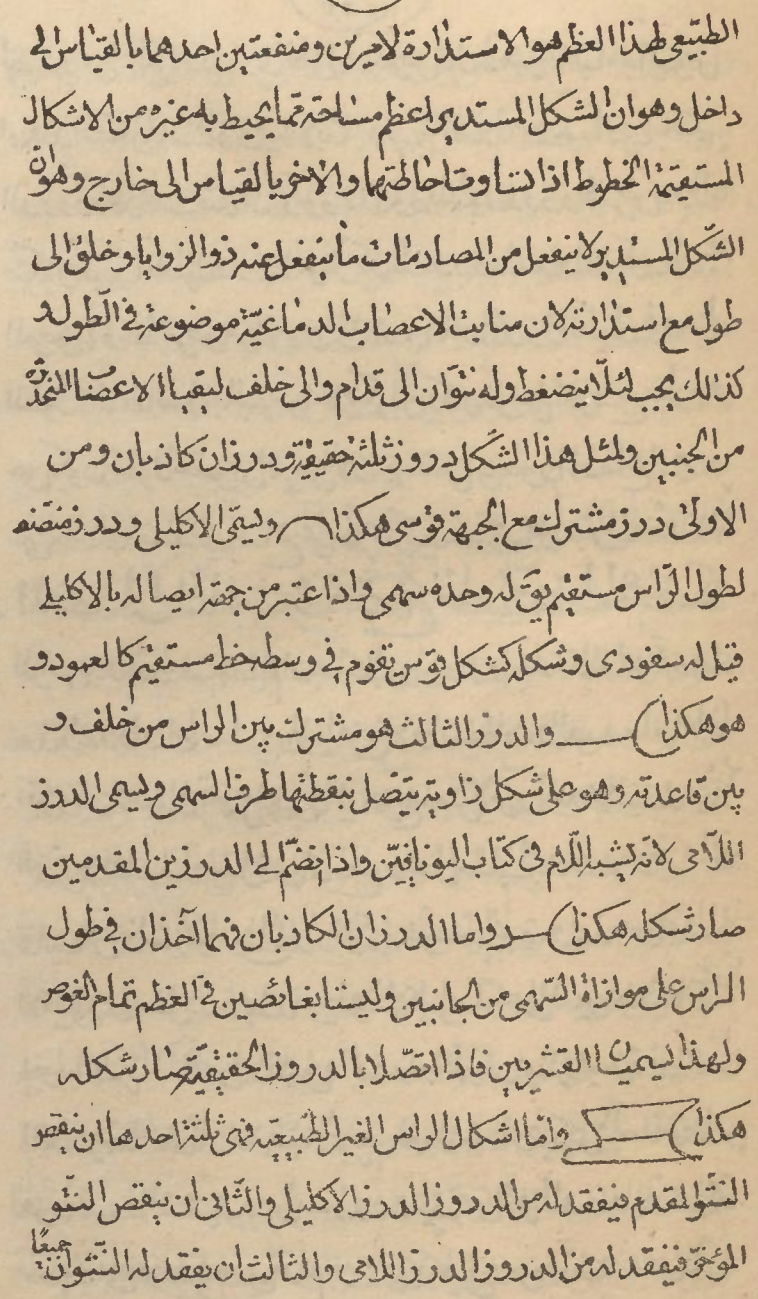 الطبيعى لهذا العظم هو الاستدارة لامرين ومنفعتين احدهما بالقياس الى
داخل وهو ان الشكل المستدير اعظم مساحة مما يحيط به غيره من الاشكال
المستقيمة الخطوط اذا تساوت احاطتها والاخر بالقياس الى خارج وهو ان
الشكل المستدير لا ينفعل من المصادمات ما ينفعل عنه ذو الزوايا وخلق الى
طول مع استدارته لان منابت الاعصاب الدماغية موضوعة فى الطول و
كذالك يجب لئلا ينضغط وله نتوان الى قدام والى خلف ليقيا الاعصاب المنحدرة
من الجنبين ولمثل هذا الشكل دروز ثلثة حقيقية ودرزان كاذبان ومن
الاولى درز مشترك مع الجبهة قوسى هكذا ويسمى الاكليلى ودرز منصف
لطول الراس مستقيم يق له وحده سهمى واذا اعتبر من جهة ايصاله بالاكليلى
قيل له سفودى وشكله كشكل قوس يقوم فى وسطه خط مستقيم كالعمود و
هو هكذا والدرز الثالث هو مشترك بين الراس من خلف و
بين قاعدته وهو على شكل زاوية يتصل بنقطتها طرف السهمى ويسمى الدرز
اللامى لانه يشبه اللام فى كتاب اليونانيين واذا انضم الى الدرزين المقدمين
صار شكله هكذا واما الدرزان الكاذبان فهما آخذان فى طول
الراس على موازاة السهمى من الجانبين وليستا بغائصين فى العظم تمام الغوص
ولهذا يسميان القشريين فاذا اتصلا بالدروز الحقيقية صار شكله
هكذا واما اشكال الراس الغير الطبيعية فهى ثلثة احدها ان ينقص
النتو المقدم فيفقد له من الدروز الدرز الاكليلى والثانى ان ينقص النتو
المؤخر فيفقد له من الدروز الدرز اللامى والثالث ان يفقد له النتوان جميعا